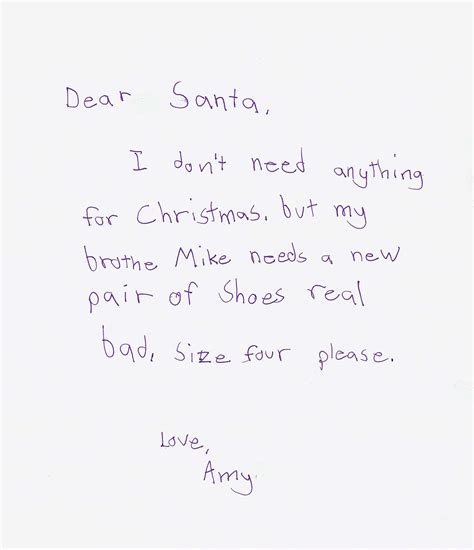 Dear Santa,
I don't need anything
for Christmas. but my
brothe Mike needs a new
pair of Shoes real
bad. Size four please.
Love,
Amy